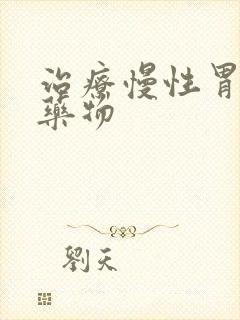 治療慢性胃
藥物
劉天